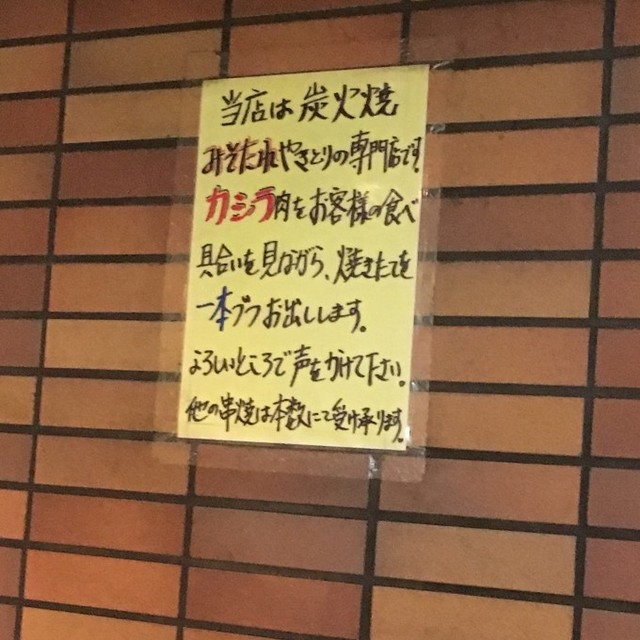 当店は炭火焼
みそたれやきとりの専門店です。
カシラ肉をお客様の食べ
具合いを見ながら、焼きたてを
一本づつお出しします。
よろしいところで声をかけて下さい。
他の串焼は本数にて受け承ります。